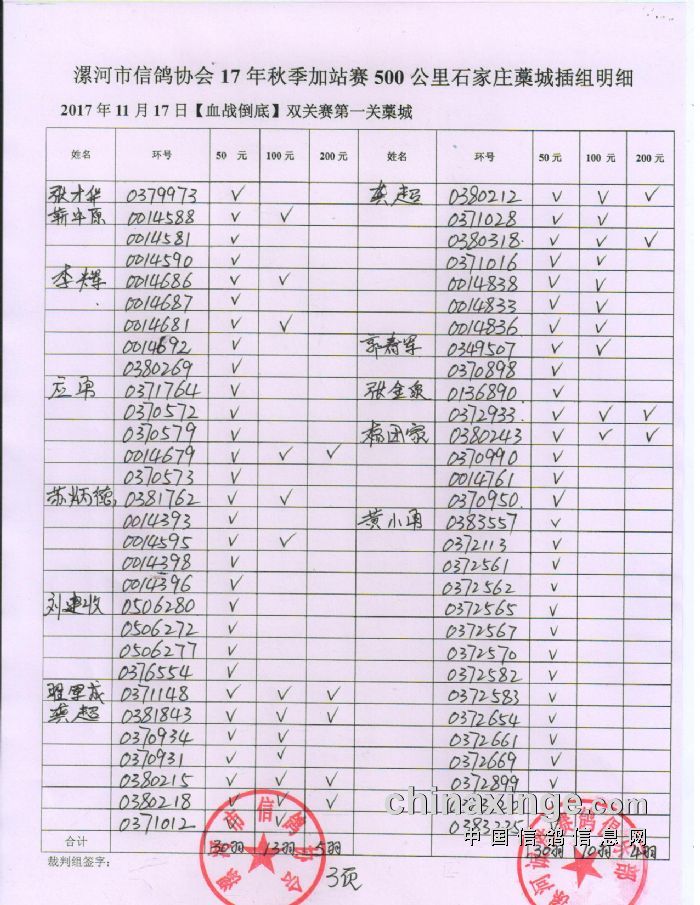 漯河市信鸽协会 17 年秋季加站赛 500 公里石家庄藁城插组明细
2017 年 11 月 17 日【血战倒底】双关赛第一关藁城
姓名 环号 50 元 100 元 200 元 姓名 环号 50 元 100 元 200 元
张才华 0379973 ✓ 龚超 0380212 ✓ ✓ ✓
靳平原 0014588 ✓ ✓ 0371028 ✓ ✓
0014581 ✓ 0380318 ✓ ✓ ✓
0014590 ✓ 0371016 ✓ ✓
李辉 0014686 ✓ ✓ 0014838 ✓ ✓
0014687 ✓ 0014833 ✓ ✓
0014681 ✓ ✓ 0014836 ✓ ✓
0014692 ✓ 郭寿军 0349507 ✓ ✓
0380269 ✓ 0370898 ✓
应勇 0371764 ✓ 张金泉 0136890 ✓
0370572 ✓ 0372933 ✓ ✓ ✓
0370579 ✓ 杨团家 0380243 ✓ ✓ ✓
0014679 ✓ ✓ ✓ 0370990 ✓
0370573 ✓ 0014761 ✓
苏炳德 0381762 ✓ ✓ 0370950 ✓
0014393 ✓ 黄小勇 0383557 ✓
0014595 ✓ ✓ 0372113 ✓
0014398 ✓ 0372561 ✓
0014396 ✓ 0372562 ✓
刘建收 0506280 ✓ 0372565 ✓
0506272 ✓ 0372567 ✓
0506277 ✓ 0372570 ✓
0376554 ✓ 0372582 ✓
0371148 ✓ ✓ ✓ 0372583 ✓
龚超 0381843 ✓ ✓ ✓ 0372654 ✓
0370934 ✓ ✓ 0372661 ✓
0370931 ✓ ✓ 0372669 ✓
0380215 ✓ ✓ ✓ 0372899 ✓
0380218 ✓ ✓ ✓
0371012 ✓ ✓ 0383225
合计 30羽 13羽 5羽 30羽 10羽 4羽
裁判组签字：
3页
漯河市信鸽协会
chinaxinge.com
中国信鸽信息网